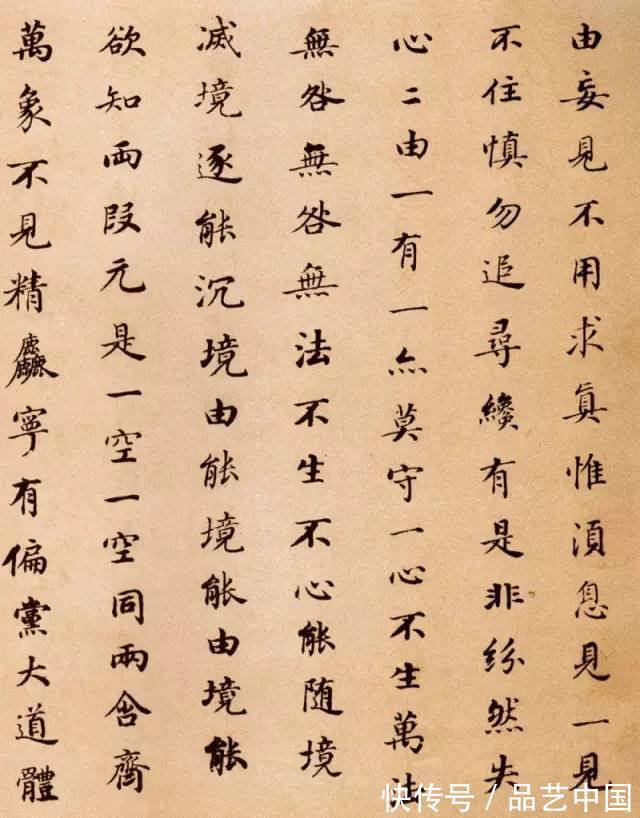 由妄見不用求真惟湏息見一見
不住慎勿追尋纔有是非紛然失
心二由一有一亦莫守一心不生萬法
無咎無咎無法不生不心能随境
滅境逐能沉境由能境能由境能
欲知兩段元是一空一空同兩含齊
萬象不見精麤寧有偏黨大道體
快传号 / 品艺中国